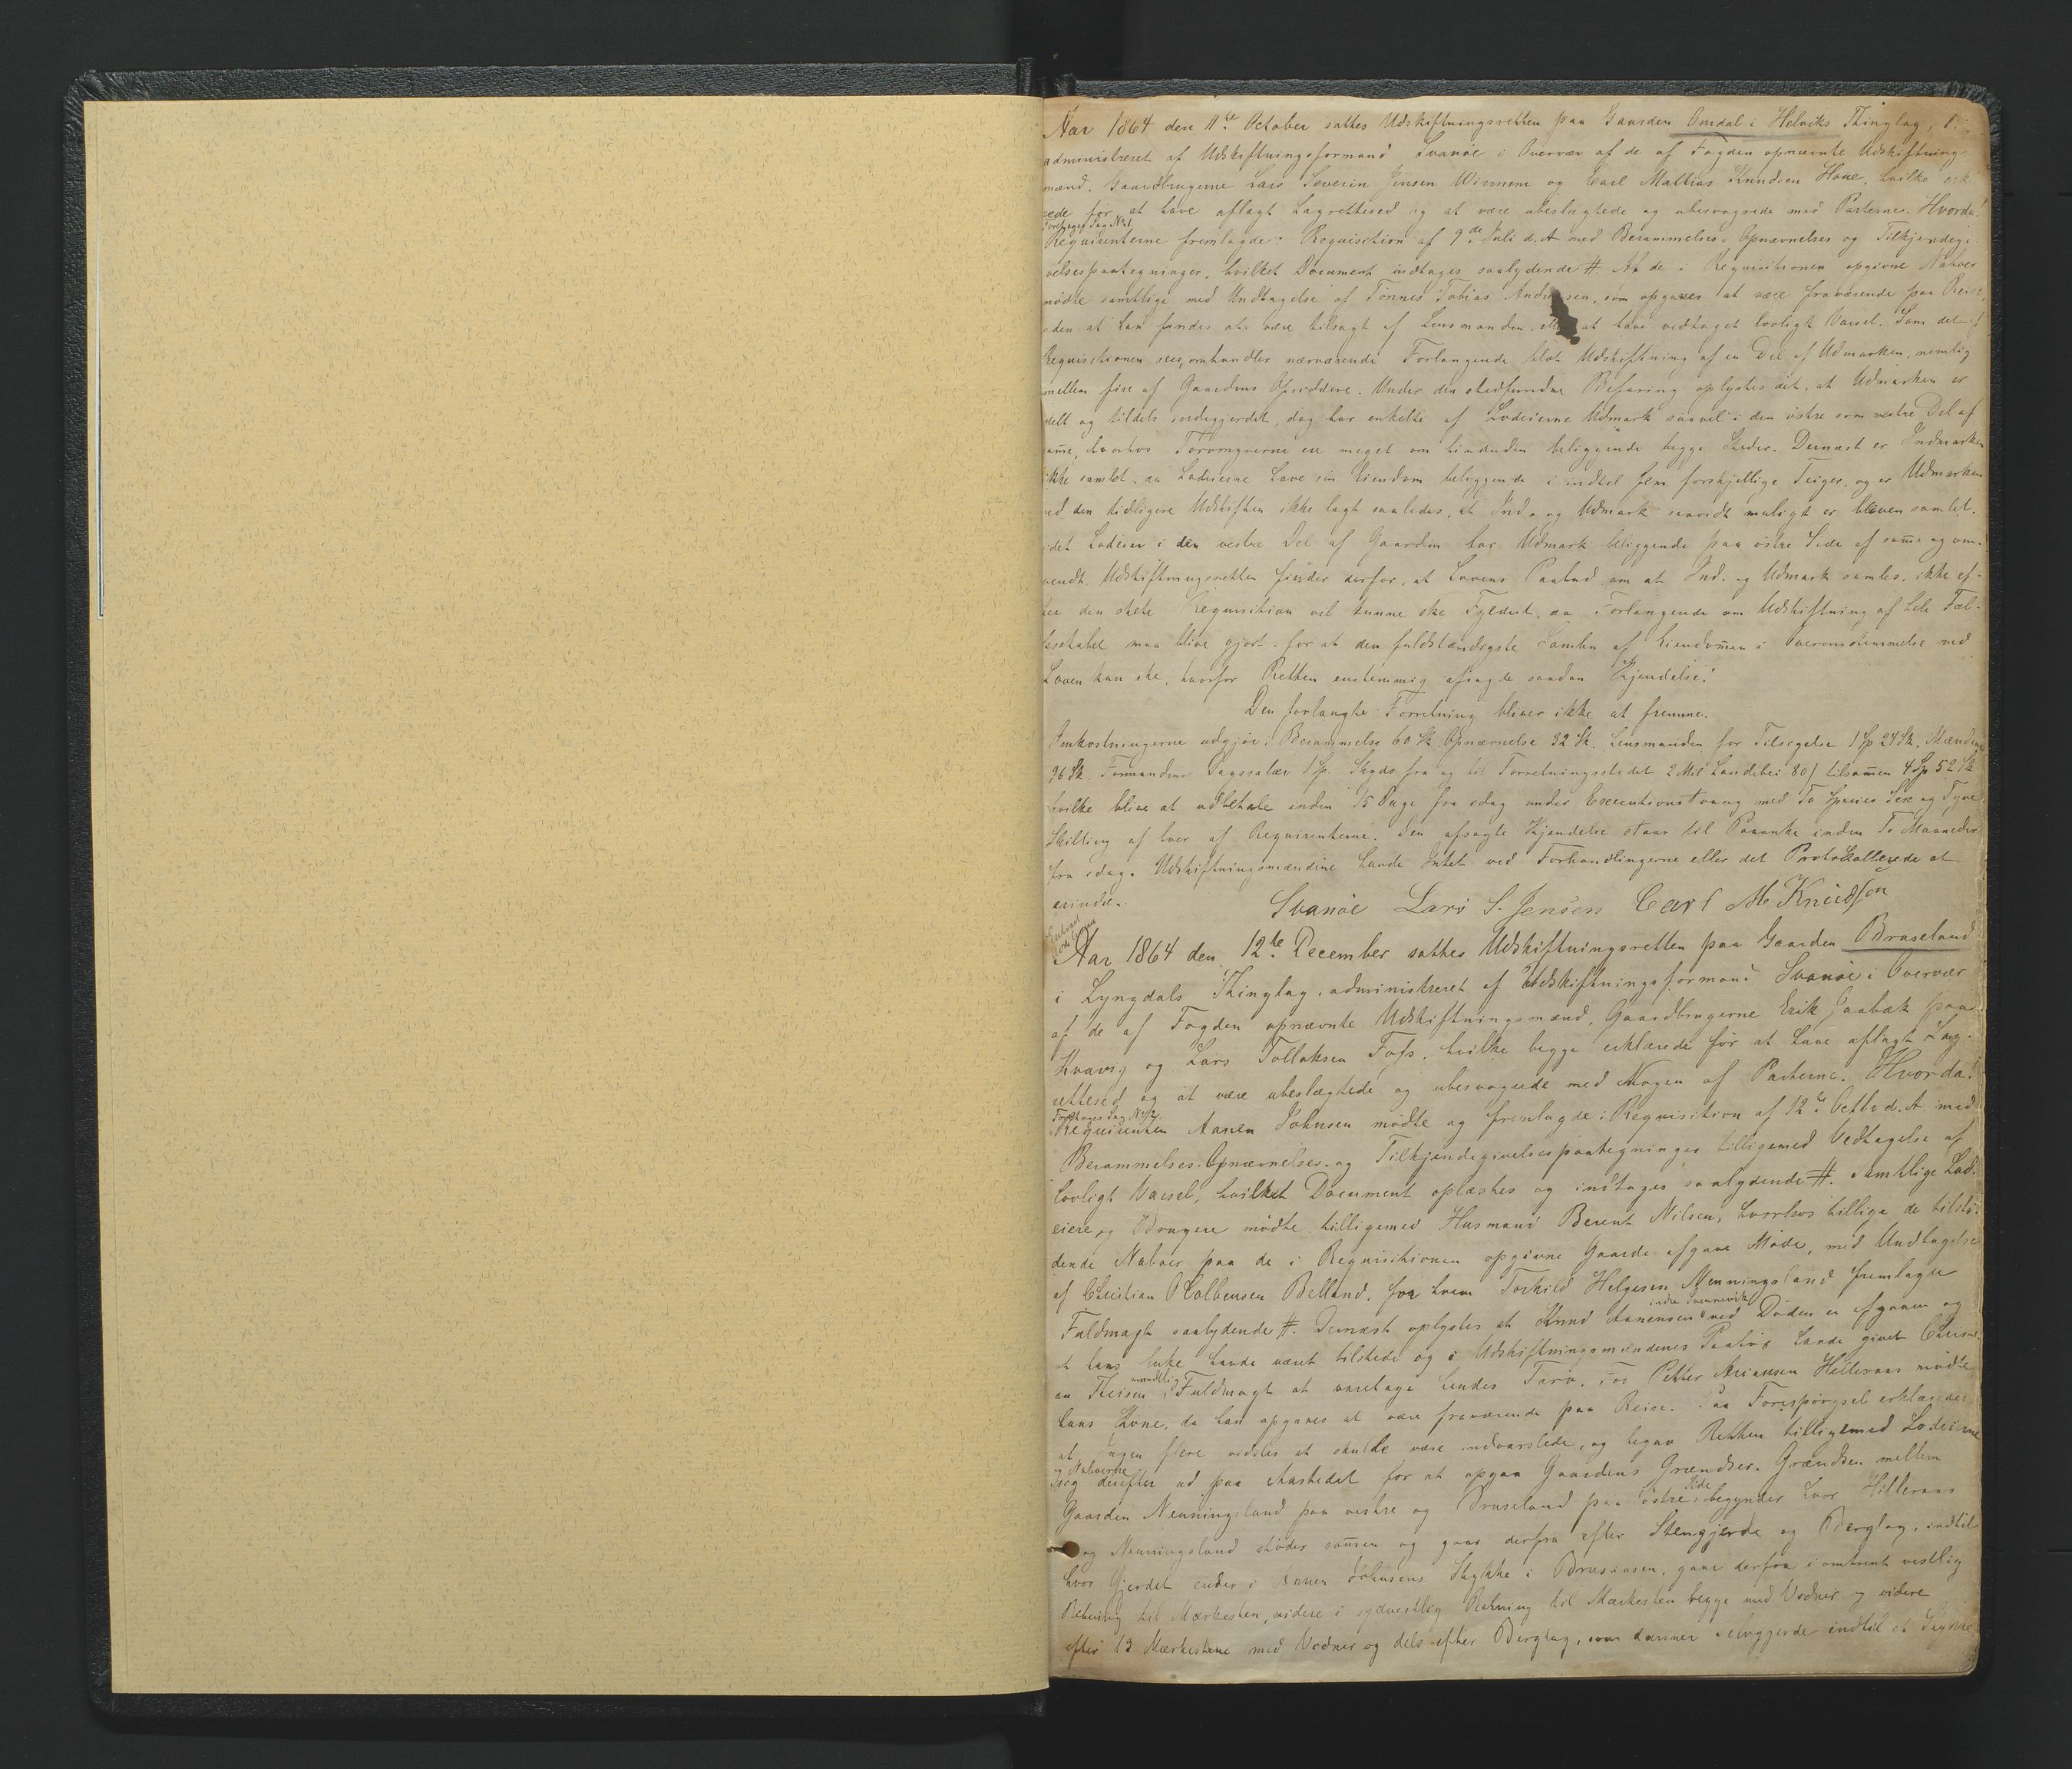 Aar 1864 den 11te October sattes Udskiftningsretten paa Gaarden Omdal i Helviks Thinglag, 1.
administreret af Udskiftningsformand Svanøe i Overvær af de af Fogden opnævnte Udskiftning-
mænd, Gaardbrugerne Lars Severin Jensen Winnem og Carl Mathias Knudsen Hove, hvilke erk
rede før at have aflagt Lagrettesed og at være ubeslægtede og ubesvogrede med Parterne. Hvorda!
Foretages Sag No 1
Requirenterne fremlagde: Requisition af 9de Juli d. A. med Berammelses- Opnævnelses og Tilkjendegi-
velsespaategninger, hvilket Document indtages saalydende #. Af de i Requisitionen opgivne Naboer
mødte samtlige med Undtagelse af Tønnes Tobias Andreasen, som opgaves at være fraværende paa Reise,
uden at han fandtes at være tilsagt af Lensmanden eller at have vedtaget lovligt Varsel. Som det af
Requisitionen sees, omhandler nærværende Forlangende blot Udskiftning af en Del af Udmarken, nemlig
mellem fire af Gaardens Opsiddere. Under den stedfundne Befaring oplystes det, at Udmarken er
delt og tildels indegjerdet, dog har enkelte af Lodeierne Udmark saavel i den østre som vestre Del af
same, hvorhos Torvmyrerne ere meget om hinanden beliggende begge Steder. Dernæst er Indmarken
ikke samlet, da Lodeierne have sin Eiendom beliggende i indtil fem forskjellige Teiger, og er Udmarken
ved den tidligere Udskiften ikke lagt saaledes, at Ind- og Udmark saavidt muligt er bleven samlet,
idet Lodeier i den vestre Del af Gaarden har Udmark beliggende paa østre Side af same og om-
vendt. Udskiftningsretten finder derfor, at Lovens Paabud om at Ind- og Udmark samles, ikke ef-
ter den skete Requisition vil kunne ske Fyldest, da Forlangende om Udskiftning af hele Fæl-
lesskabet maa blive gjort, for at den fuldstændigste Samlen af Eiendomen i Overensstemmelse med
Loven kan ske, hvorfor Retten enstemmig afsagde saadan Kjendelse:
Den forlangte Forretning bliver ikke at fremme.
Omkostningerne udgjør: Berammelse 60 Sk. Opnævnelse 32 Sk. Lensmanden for Tilsigelse 1 Sp 24 Sk, Mændene
96 Sk. Formandens Dagssalær 1 Sp. Skyds fra og til Forretningsstedet 2 Mil Landevei 80/ tilsamen 4 Sp 52 Sk
hvilke blive at udbetale inden 15 Dage fra idag under Executionstvang med To Species Sex og Tyve
Skilling af hver af Requirenterne. Den afsagte Kjendelse staar til Paaanke inden To Maaneder
fra idag. Udskiftningsmændene havde Intet ved Forhandlingerne eller det Protokollerede at
erindre.
Svanøe Lars S. Jensen Carl M. Knudsøn
Aar 1864 den 12te December sattes Udskiftningsretten paa Gaarden Bruseland
i Lyngdals Thinglag, administreret af Udskiftningsformand Svanøe i Overvær
af de af Fogden opnævnte Udskiftningsmænd, Gaardbrugerne Erik Jaabæk paa
Kvavig og Lars Tollaksen Foss, hvilke begge erklærede før at have aflagt Lag-
rettesed og at være ubeslægtede og ubesvogrede med Nogen af Parterne. Hvorda!
Foretages Sag No 2.
Requirenten Aanen Johnsen mødte og fremlagde: Requisition af 12te Octbr d. A. med
Berammelses- Opnævnelses- og Tilkjendegivelsespaategninger tilligemed Vedtagelse af
lovligt Varsel, hvilket Document oplæstes og indtages saalydende #. Samtlige Lod-
eiere og Brugere mødte tilligemed Husmand Berent Nilsen, hvorhos tillige de tilstø-
dende Naboer paa de i Requisitionen opgivne Gaarde afgave Møde, med Undtagelse
af Christian Kolbensen Belland, for hvem Torkild Helgesen Nenningsland fremlagde
Fuldmagt saalydende #. Dernæst oplystes at Knud Aanensen indre Svennevik ved Døden er afgaaen og
at hans Enke havde været tilstede og i Udskiftningsmændenes Paahør havde givet Christi-
an Theisen mundtlig Fuldmagt at varetage hendes Tarv. For Petter Arianssen Hilleraas mødte
hans Kone, da han opgaves at være fraværende paa Reise. Paa Forespørgsel erklæredes
at Ingen flere vidstes at skulde være indvarslede, og begav Retten tilligemed Lodeierne
og Naboerne
sig derefter ud paa Aastedet for at opgaa Gaardens Grændser. Grændsen mellem
Gaarden Nenningsland paa vestre og Bruseland paa østre Side begynder hvor Hilleraas
og Nenningsland støder samen og gaar derfra efter Stengjerde og Berglag, indtil
hvor Gjerdet ender i Aanen Johnsens Stykke i Brusaasen, gaar derfra i omtrent vestlig
Retning til Mærkesten, videre i sydvestlig Retning til Mærkesten begge med Vidner og videre
efter 13 Mærkestene med Vidner og dels efter Berglag, som danner Selvgjerde indtil et Stykke